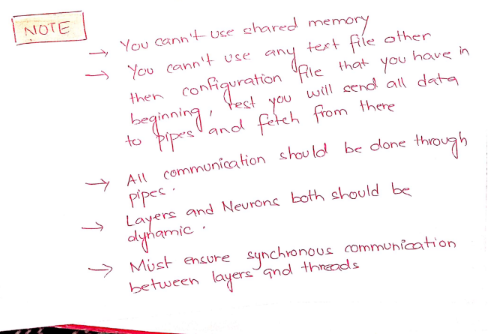 NOTE
→ You cann't use shared memory
→ You cann't use any text file other
then configuration file that you have in
beginning, rest you will send all data
to pipes and fetch from there
→ All communication should be done through
pipes.
→ Layers and Neurons both should be
dynamic.
→ Must ensure synchronous communication
between layers and threads